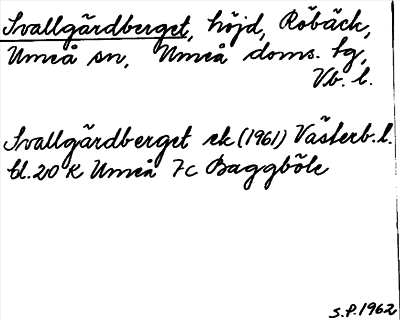 Svallgärdberget, höjd, Röbäck,
Umeå sn, Umeå doms. tg,
Vb. l.
Svallgärdberget ek (1961) Västerb. l.
bl. 20 K Umeå 7c Baggböle
S.P. 1962